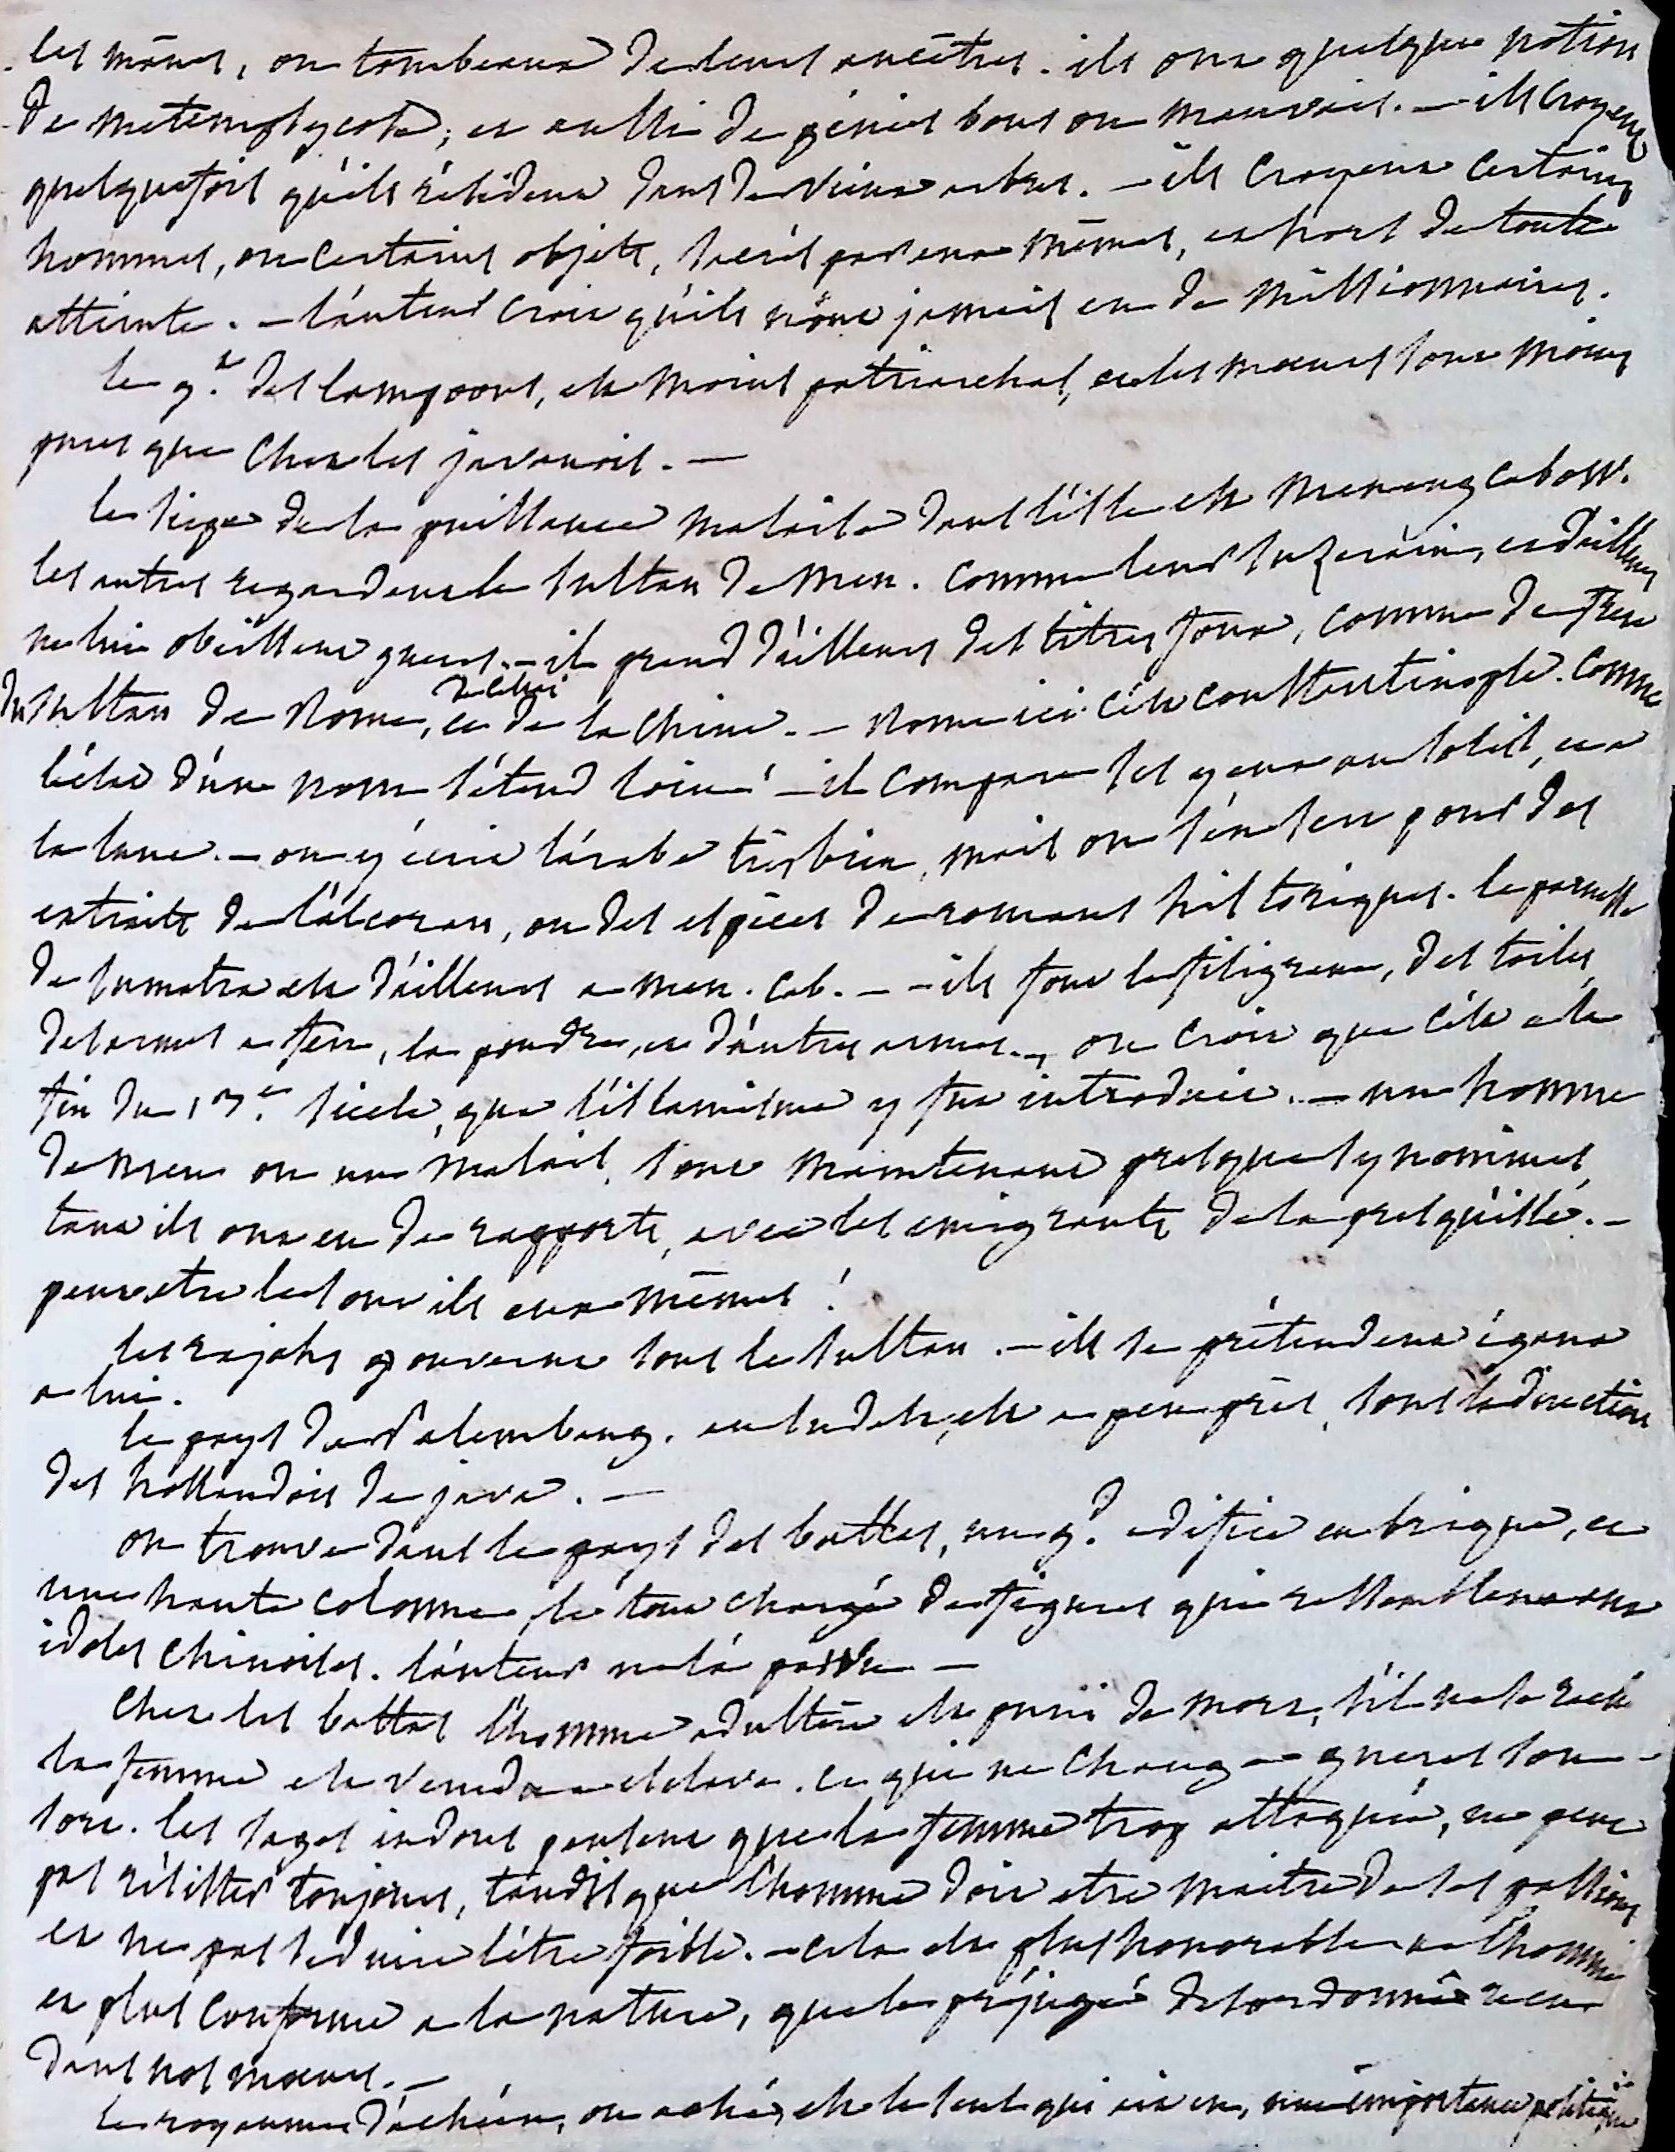 les mânes, ou tombeaux de leurs ancêtres. ils ont quelque notion
de metempsycose, et aussi de génies bons ou mauvais. — ils croyent
quelquefois qu'ils résident dans de vieux arbres. — ils croyent certains
hommes, ou certains objets, sacrés par eux mêmes, et hors de toute
atteinte. — l'auteur croit qu'ils n'ont jamais eu de missionnaires.
le g.t des lampoons, est moins patriarchal, et les mœurs sont moins
pures que chez les javanois. —
le siège de la puissance malaise dans l'isle est Menangcabow.
les autres regardent le sultan de Men. comme leur suzerain, et d'ailleurs
ne lui obéissent guères. — il prend d'ailleurs des titres foux, comme de frère
du sultan de Rome, et de celui de la Chine. — Rome ici c'est constantinople. Comme
l'éclat d'un nom s'étend loin! — il compare ses yeux au soleil, et a
la lune. — on y écrit l'arabe très bien, mais on s'en sert pour des
extraits de l'alcoran, ou des espèces de romans historiques. le parnasse
de sumatra est d'ailleurs a men. cab. — — ils font le filigrane, des toiles,
des armes a feu, la poudre, et d'autres armes. — on croit que c'est a la
fin du 17.e siècle, que l'islamisme y fut introduit. — un homme
de Men ou un Malais, sont maintenant presque synonimes,
tant ils ont eu de rapports, avec les émigrants de la presqu'isle. —
peut être le sont ils eux mêmes!
les rajahs gouvernent sous le sultan. — ils se prétendent égaux
a lui.
le pays de Palembang. au sud est, est a peu près, sous la direction
des hollandois de java. —
on trouve dans le pays des battas, un g.d édifice en brique, et
une haute colonne, le tout chargé de figures qui ressemblent aux
idoles chinoises. l'auteur ne l'a pas vu —
Chez les battas l'homme adultère est puni de mort, s'il ne se rachète
la femme est vendue esclave. ce qui ne change guères son
sort. les sages indous pensent que la femme trop attaquée, ne peut
pas résister toujours, tandis que l'homme doit etre maitre de ses passions
et ne pas séduire l'être foible. — cela est plus honorable a l'homme
et plus conforme a la nature, que le préjugé désordonné reçu
dans nos mœurs. —
le royaume d'achéen, ou aché, est le seul qui ait eu, une importance politique